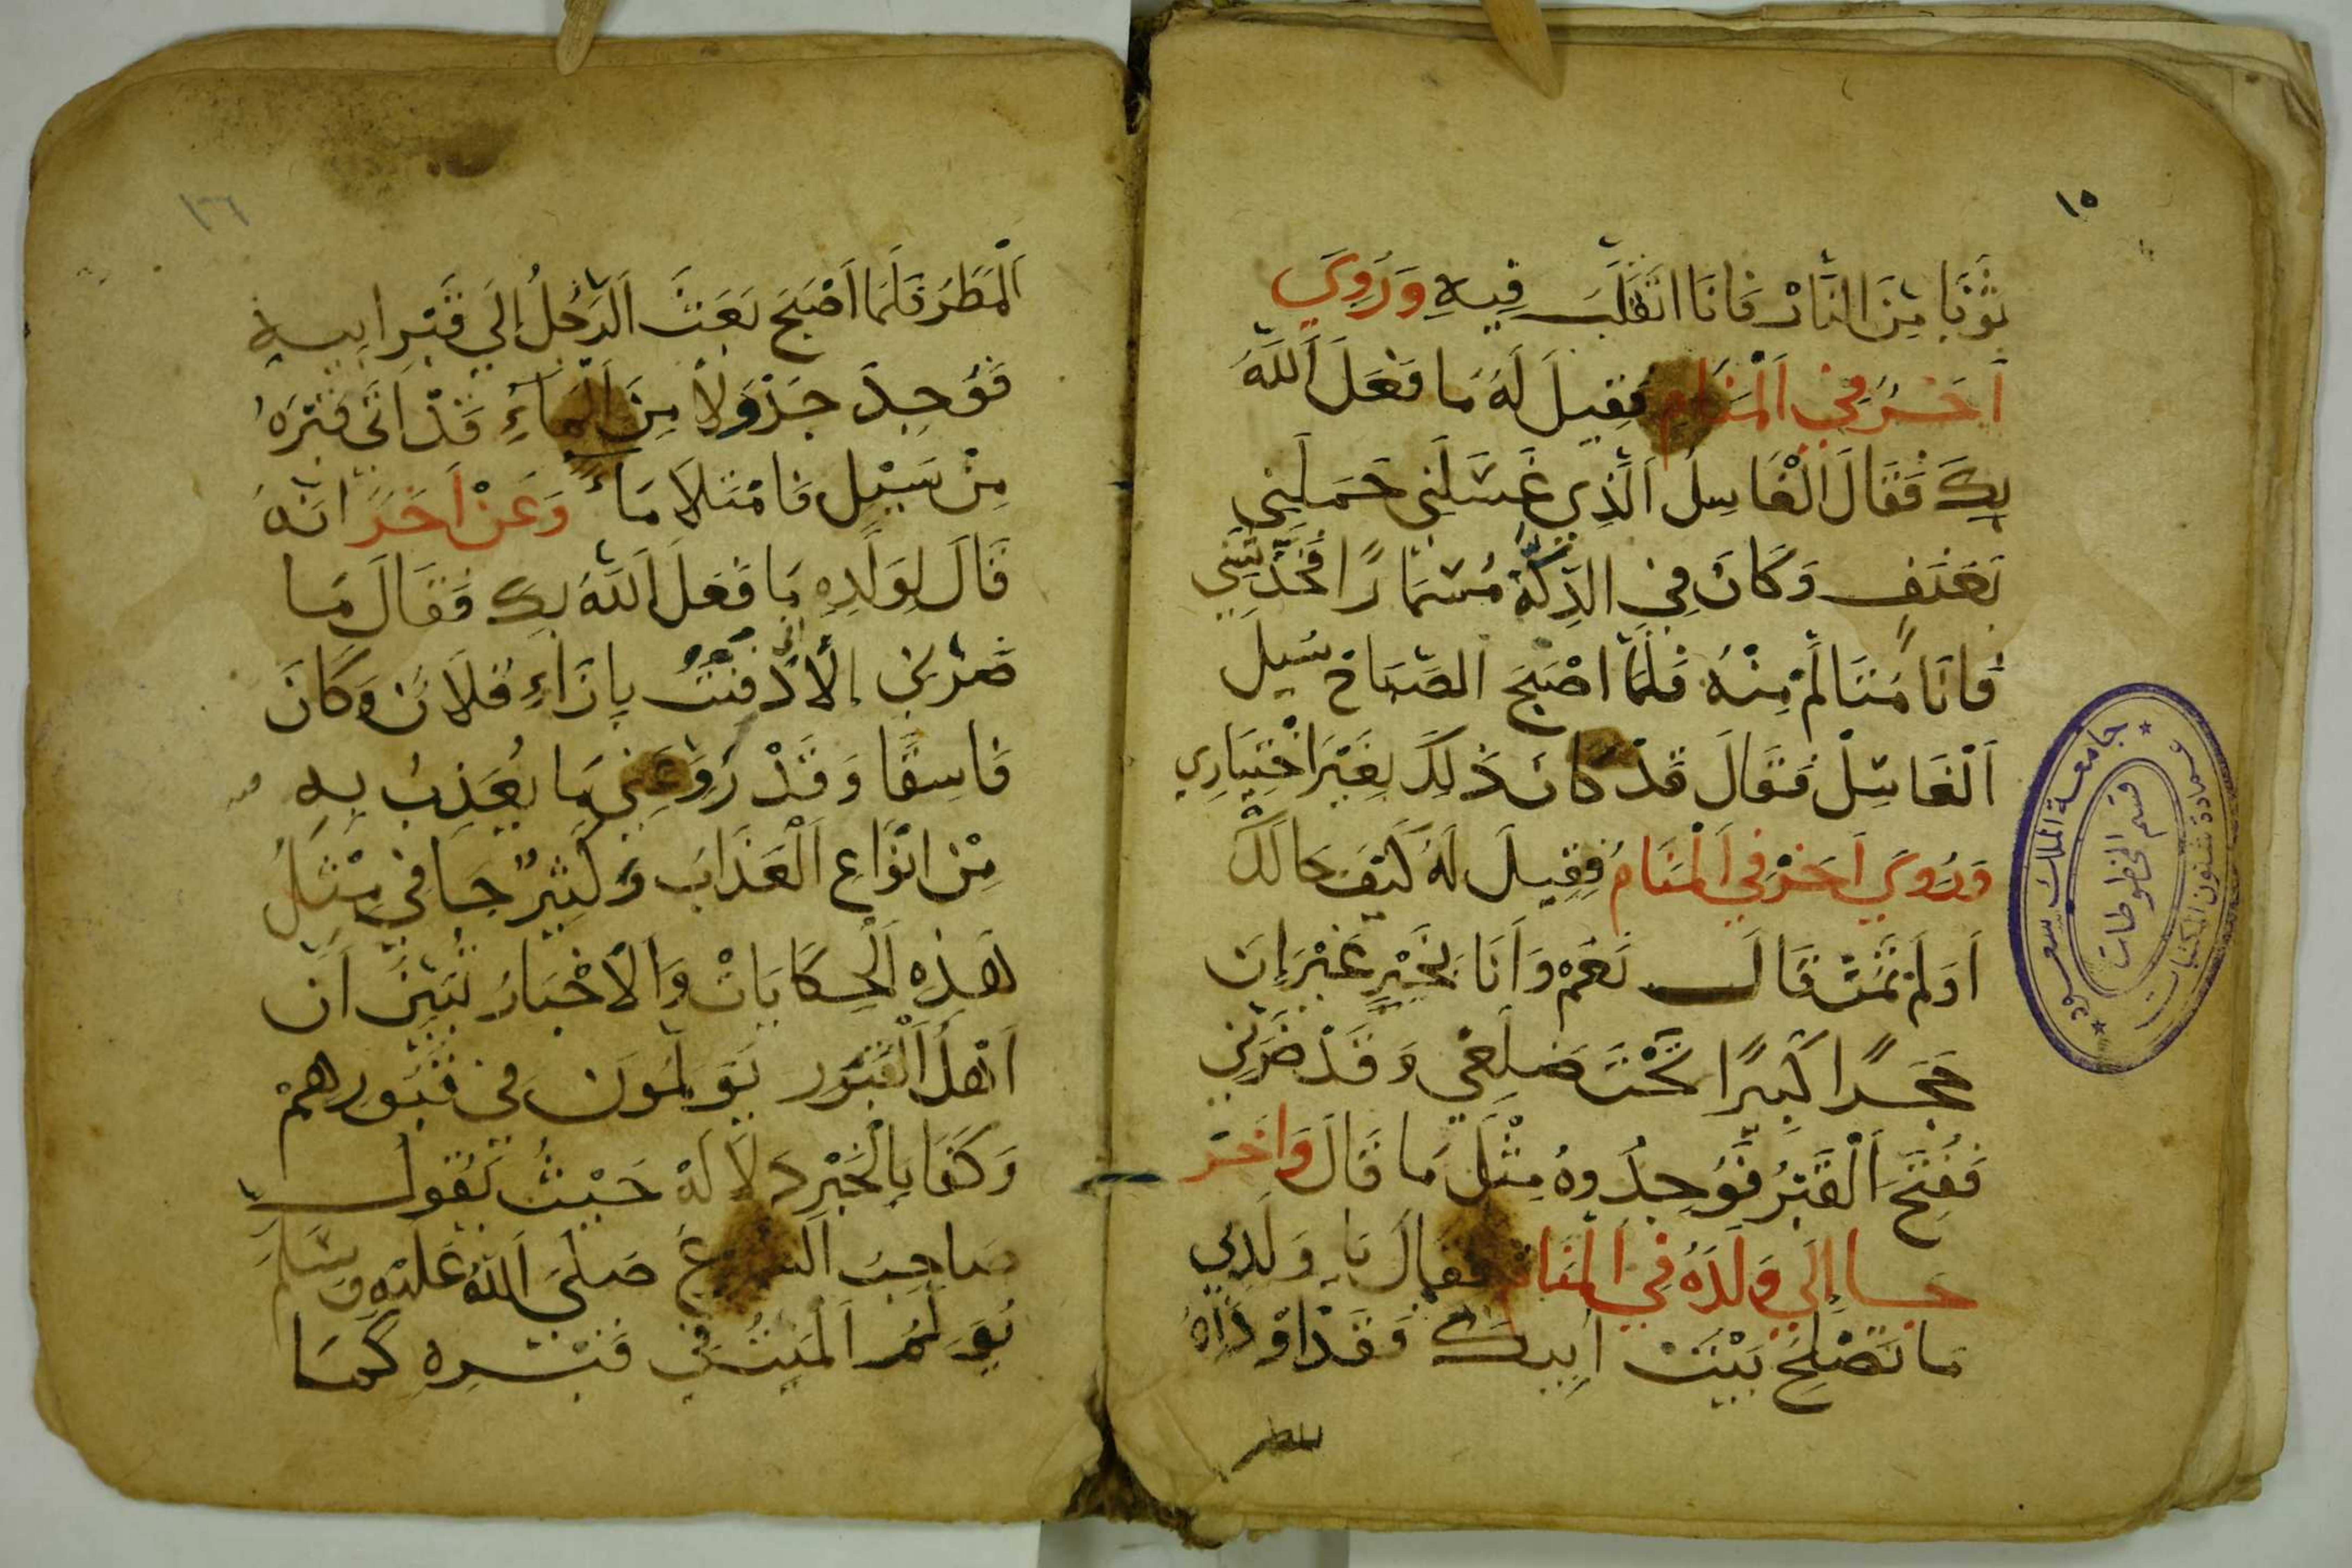 ١٥
ثَوْبًا مِنَ النَّارِ فَانَا اتَقَلَّبُ فِيهِ وَرُوِيَ
اَخَرُ فِي اَلْمَنَامِ فَقِيلَ لَهُ مَا فَعَلَ اَللَّهُ
بِكَ فَقَالَ الْغَاسِلُ اَلَّذِي غَسَّلَنِي حَمَلَنِي
بَعَنَفٍ وَكَانَ فِي الدِّكَّةِ مُسْمَارًا فَخَذَشَنِي
فَانَا مُتَالِّمْ مِنْهُ فَلَمَّا اصْبَحَ الصَّبَاحْ سُيلَ
اَلْغَاسِلْ فَقَالَ قَدْ كَانَ ذَلِكَ بِغَيْرَ اخْتِيَارِي
وَرُوِيَ اَخَرْ فِي اَلْمَنَامْ فَقِيلَ لَهُ كَيْفَ حَالَكْ
اَوَلَمْ تَمُتْ قَالَ نَعَمْ وَاَنَا بِخَيْرٍ غَيْرَ اِنَ
حَجَرًا كَبِيرًا تَحْتَ ضَلَعِي وَقَدْ ضَرَّنِي
فَفُتِحَ اَلْقَبْرُ فَوُجِدُوهُ مِثْلَ مَا قَالَ وَاَخَرْ
جَا اِلَي وَلَدَهُ فِي اَلْمَنَامْ فَقَالَ يَا وَلَدِي
مَا تَصْلِحُ بَيْتَ اَبِيكَ فَقَدْ اوْذَاهُ
المطر
جامعة الملك سعود
عمادة شئون المكتبات
قسم المخطوطات
١٦
اَلْمَطَرَ فَلَمَا اَصْبَحَ بَعَثَ اَلرَّجُلُ إِلَي قَبْرِ ابِيهِ
فَوُجِدَ جَدْوَلًا مِنَ اَلْمَاءِ قَدْ اَتَي قَبْرَهُ
مِنْ سَيْلٍ فَامْتَلَا مَاءً وَعَنْ اَخَرَ انَّهُ
قَالَ لِوَلَدِهِ مَا فَعَلَ اَللَّهُ بِكَ فَقَالَ مَا
ضَرَّنِي إِلاَّ دُفِنْتُ بِازَاءِ فُلاَنْ وَكَانَ
فَاسِقًا وَقَدْ رَوَّعَنِي مَا يُعَذِبُ بِهِ
مِنْ انْوَاعِ اَلْعَذَابَ وَكَثِيرٌ جَا فِي مِثْلُ
هَذِهِ اَلْحِكَايَاتْ وَالاَخْبَارُ تُبَيِّنُ اَنَّ
اَهْلَ اَلْقُبُور يَوَلَمُونَ فِي قُبُورِهِمْ
وَكَفَا بِالْخَبْرِ دَلاَلَهْ حَيْثُ يَقُولُ
صَاحِبَ الشرع صَلَي اَللهُ عَلَيْهِ وَسَلَّمَ
يُوَلَمُ اَلْمَيِّتُ فِي قَبْرِهِ كَمَا